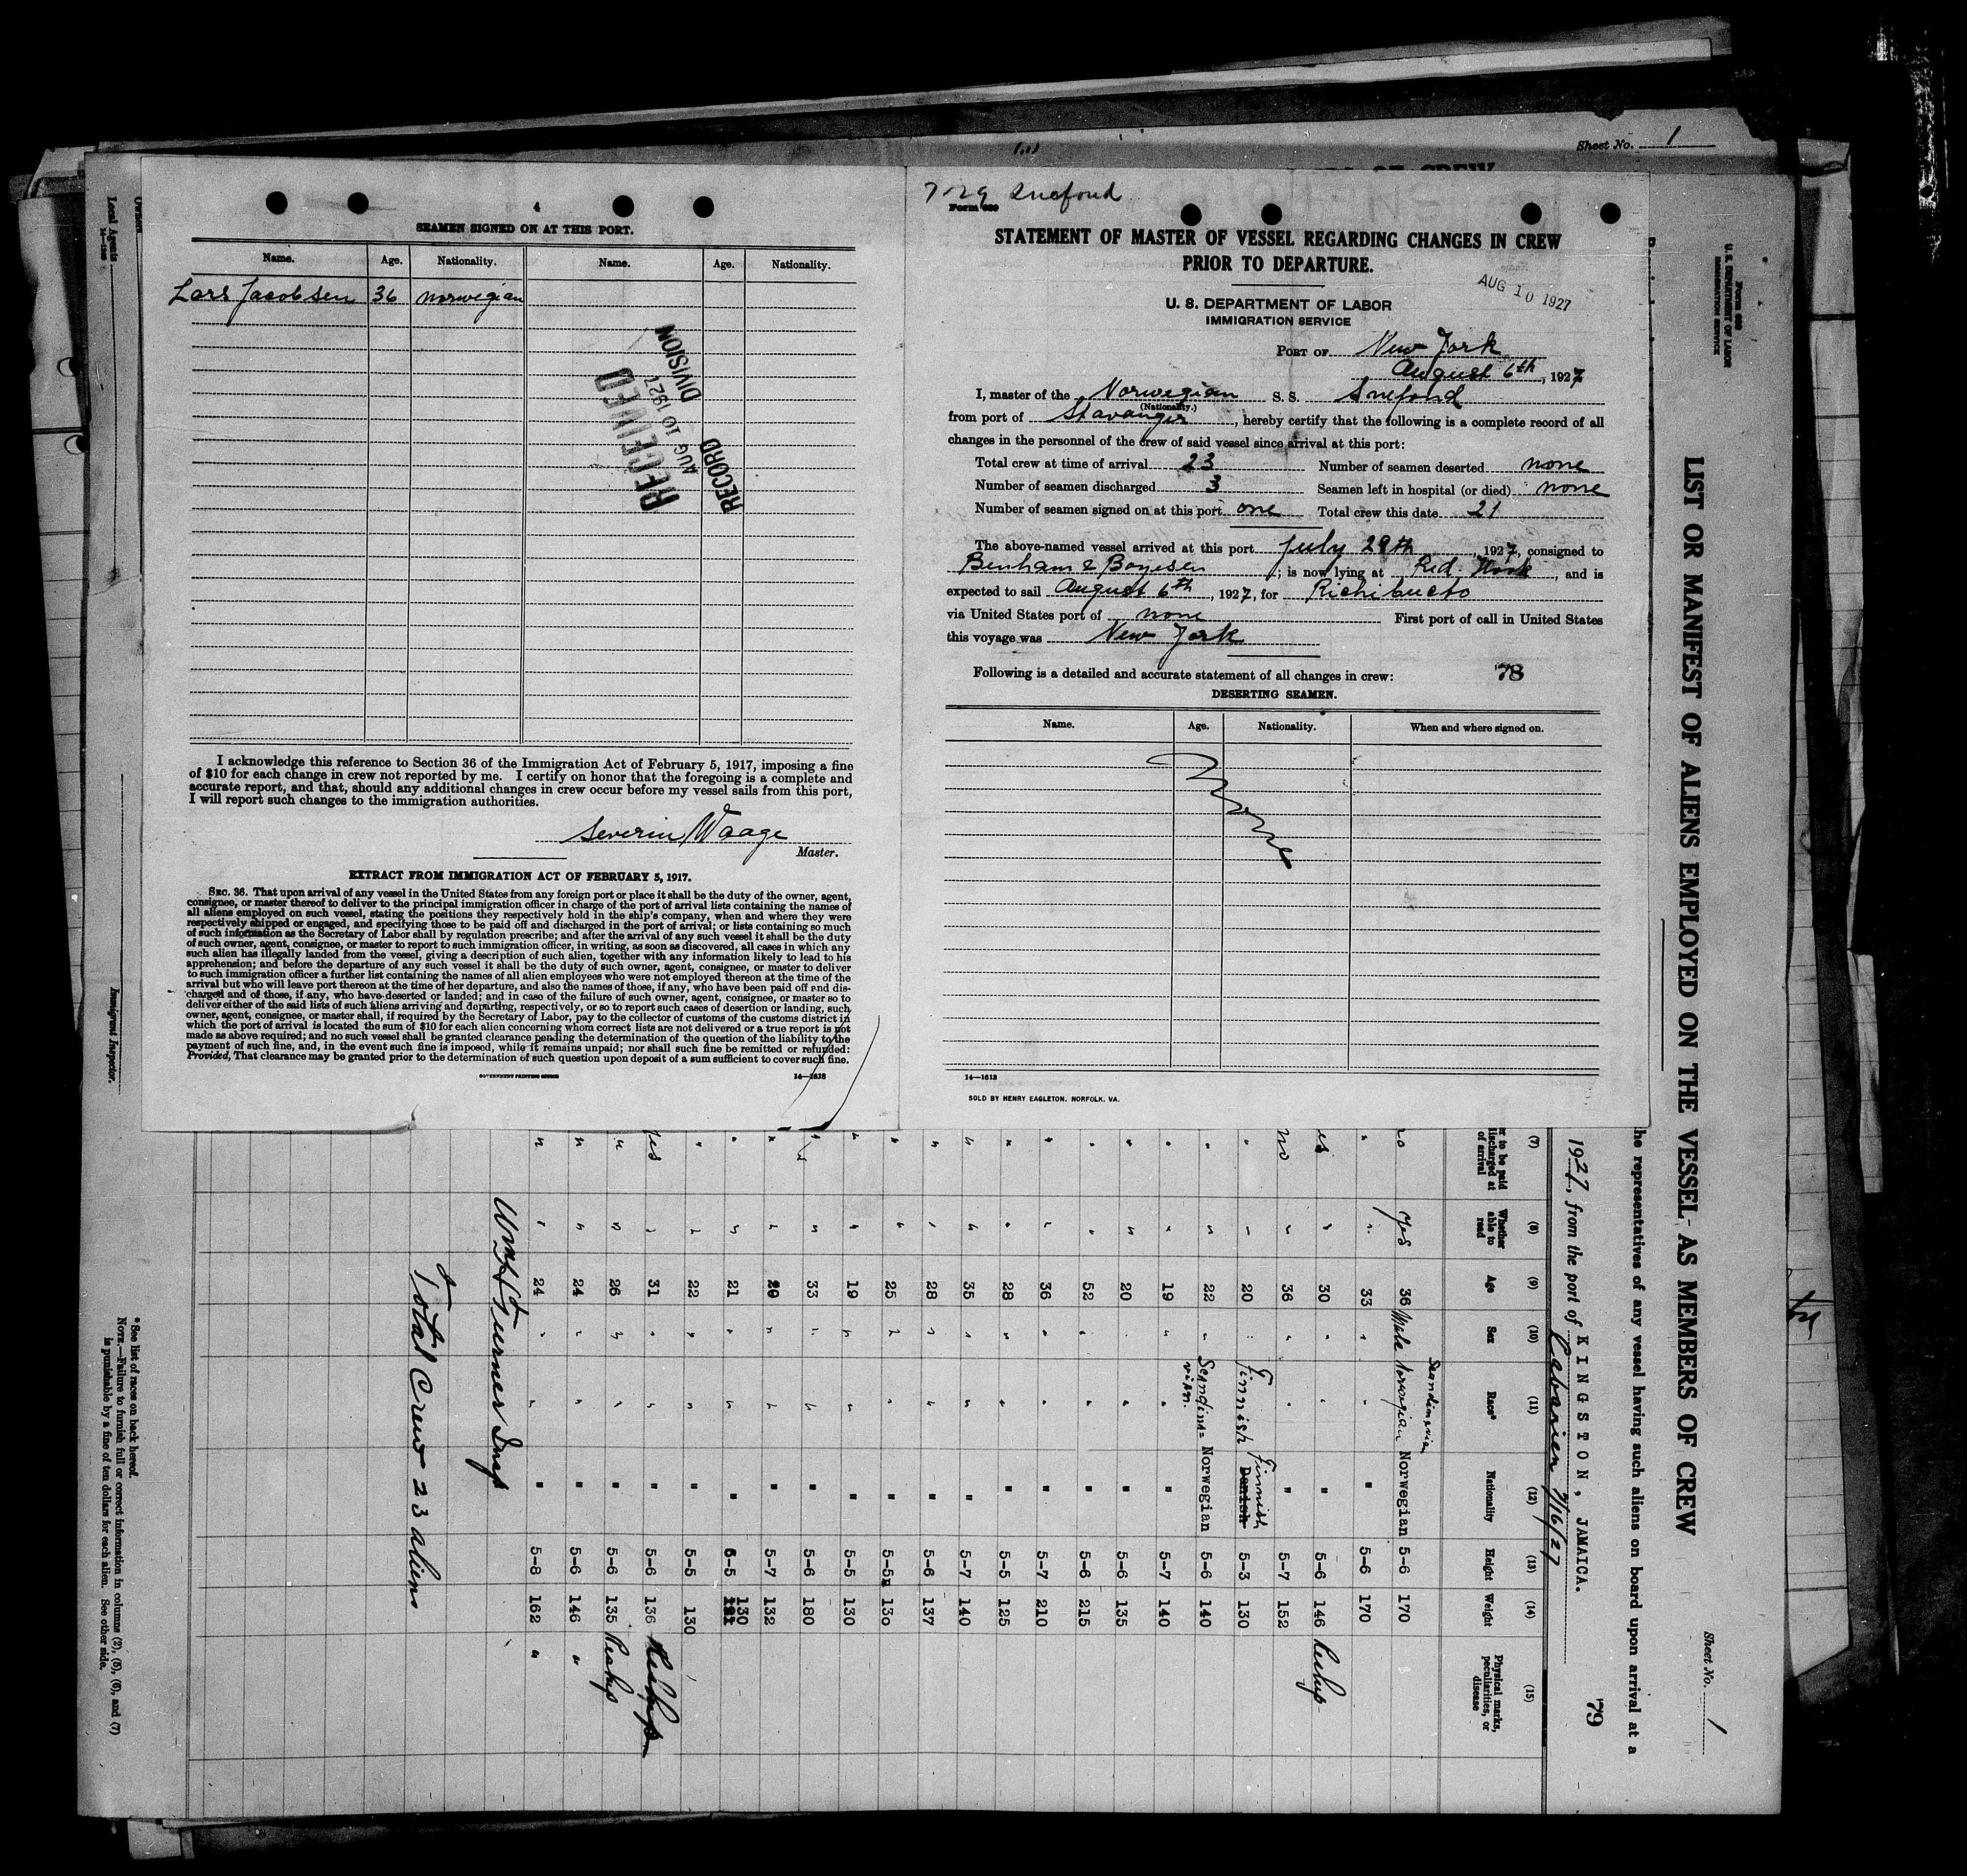 Sheet No. 1
4
SEAMEN SIGNED ON AT THIS PORT.
Name. Age. Nationality. Name. Age. Nationality.
Lars Jacobsen 36 norwegian
RECEIVED
AUG 10 1927
RECORD DIVISION
I acknowledge this reference to Section 36 of the Immigration Act of February 5, 1917, imposing a fine
of $10 for each change in crew not reported by me. I certify on honor that the foregoing is a complete and
accurate report, and that, should any additional changes in crew occur before my vessel sails from this port,
I will report such changes to the immigration authorities.
Severin Waage
Master.
EXTRACT FROM IMMIGRATION ACT OF FEBRUARY 5, 1917.
SEC. 36. That upon arrival of any vessel in the United States from any foreign port or place it shall be the duty of the owner, agent,
consignee, or master thereof to deliver to the principal immigration officer in charge of the port of arrival lists containing the names of
all aliens employed on such vessel, stating the positions they respectively hold in the ship's company, when and where they were
respectively shipped or engaged, and specifying those to be paid off and discharged in the port of arrival; or lists containing so much
of such information as the Secretary of Labor shall by regulation prescribe; and after the arrival of any such vessel it shall be the duty
of such owner, agent, consignee, or master to report to such immigration officer, in writing, as soon as discovered, all cases in which any
such alien has illegally landed from the vessel, giving a description of such alien, together with any information likely to lead to his
apprehension; and before the departure of any such vessel it shall be the duty of such owner, agent, consignee, or master to deliver
to such immigration officer a further list containing the names of all alien employees who were not employed thereon at the time of the
arrival but who will leave port thereon at the time of her departure, and also the names of those, if any, who have been paid off and dis-
charged and of those, if any, who have deserted or landed; and in case of the failure of such owner, agent, consignee, or master so to
deliver either of the said lists of such aliens arriving and departing, respectively, or so to report such cases of desertion or landing, such
owner, agent, consignee, or master shall, if required by the Secretary of Labor, pay to the collector of customs of the customs district in
which the port of arrival is located the sum of $10 for each alien concerning whom correct lists are not delivered or a true report is not
made as above required; and no such vessel shall be granted clearance pending the determination of the question of the liability to the
payment of such fine, and, in the event such fine is imposed, while it remains unpaid; nor shall such fine be remitted or refunded:
Provided, That clearance may be granted prior to the determination of such question upon deposit of a sum sufficient to cover such fine.
GOVERNMENT PRINTING OFFICE 14—1613
7-29 Snefond
Form 689
STATEMENT OF MASTER OF VESSEL REGARDING CHANGES IN CREW
PRIOR TO DEPARTURE.
AUG 10 1927
U. S. DEPARTMENT OF LABOR
IMMIGRATION SERVICE
PORT OF New York
August 6th, 1927
I, master of the Norwegian S. S. Snefond
(Nationality.)
from port of Stavanger, hereby certify that the following is a complete record of all
changes in the personnel of the crew of said vessel since arrival at this port:
Total crew at time of arrival 23 Number of seamen deserted none
Number of seamen discharged 3 Seamen left in hospital (or died) none
Number of seamen signed on at this port one Total crew this date 21
The above-named vessel arrived at this port July 29th, 1927, consigned to
Benham & Boyesen; is now lying at Red Hook, and is
expected to sail August 6th, 1927, for Richibucto
via United States port of none First port of call in United States
this voyage was New York
Following is a detailed and accurate statement of all changes in crew: 78
DESERTING SEAMEN.
Name. Age. Nationality. When and where signed on.
None
14—1613
SOLD BY HENRY EAGLETON, NORFOLK, VA.
U. S. DEPARTMENT OF LABOR
IMMIGRATION SERVICE
Sheet No. 1
LIST OR MANIFEST OF ALIENS EMPLOYED ON THE VESSEL AS MEMBERS OF CREW
the representatives of any vessel having such aliens on board upon arrival at a
79
1927, from the port of KINGSTON, JAMAICA.
Caibarien 7/16/27
(7) (8) (9) (10) (11) (12) (13) (14) (15)
to be paid discharged at of arrival Whether able to read Age Sex Race* Nationality Height Weight Physical marks, peculiarities, or disease
Scandinavian
no yes 36 Male Norwegian Norwegian 5-6 170
" " 33 " " " 5-6 170
" 30 " " " 5-6 146
no " 36 " " " 5-7 152
" " 20 " Finnish Finnish Danish 5-3 130
" " 22 " Scandinavian Norwegian 5-6 140
" " 19 " " " 5-7 140
" " 20 " " " 5-6 135
" " 52 " " " 5-6 215
" " 36 " " " 5-7 210
" " 28 " " " 5-5 125
" " 35 " " " 5-7 140
" " 28 " " " 5-6 137
" " 25 " " " 5-5 130
" " 19 " " " 5-5 130
" " 33 " " " 5-6 180
" " 29 " " " 5-7 132
" " 21 " " " 5-5 130
" " 22 " " " 5-5 130
yes " 31 " " " 5-6 136
" " 26 " " " 5-6 135
" " 24 " " " 5-6 146 "
" " 24 " " " 5-8 162 "
Turner Insp
Total Crew 23 aliens
*See list of races on back hereof.
NOTE.—Failure to furnish full or correct information in columns (2), (5), (6), and (7)
is punishable by a fine of ten dollars for each alien. See other side.
Owners
Local Agents
Immigrant Inspector.